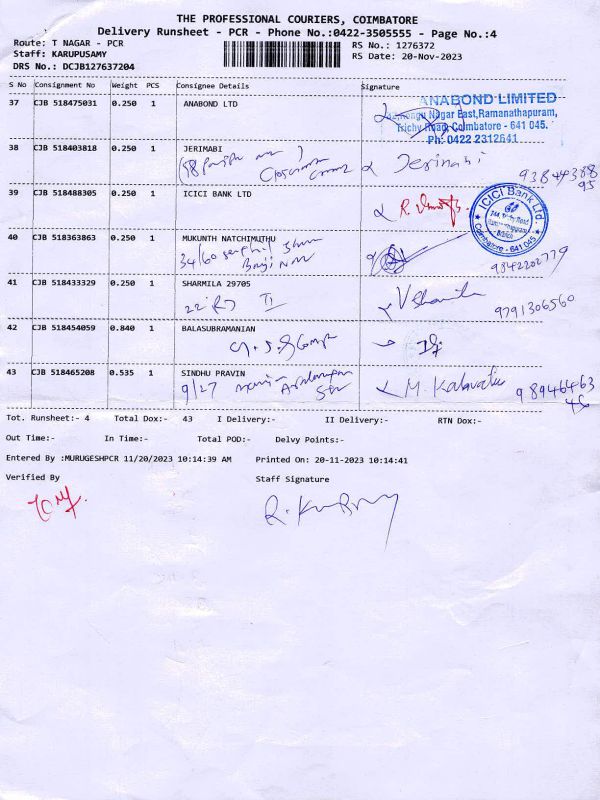 THE PROFESSIONAL COURIERS, COIMBATORE
Delivery Runsheet - PCR - Phone No.:0422-3505555 - Page No.:4
Route: T NAGAR - PCR RS No.: 1276372
Staff: KARUPUSAMY RS Date: 20-Nov-2023
DRS No.: DCJB127637204
S No Consignment No Weight PCS Consignee Details Signature
37 CJB 518475031 0.250 1 ANABOND LTD
ANABOND LIMITED
Nagar East, Ramanathapuram,
Trichy Road, Coimbatore - 641 045.
Ph: 0422 2312641
38 CJB 518403818 0.250 1 JERIMABI
Jerimabi
93844388
95
39 CJB 518488305 0.250 1 ICICI BANK LTD
R.
ICICI Bank Ltd.
Trichy Road
Branch
Coimbatore - 641 045
40 CJB 518363863 0.250 1 MUKUNTH NATCHIMUTHU
34/60
9842202779
41 CJB 518433329 0.250 1 SHARMILA 29705
22
V Sharmila
9791306560
42 CJB 518454059 0.840 1 BALASUBRAMANIAN
43 CJB 518465208 0.535 1 SINDHU PRAVIN
9/27
M. Kalavathi
989464463
46
Tot. Runsheet:- 4 Total Dox:- 43 I Delivery:- II Delivery:- RTN Dox:-
Out Time:- In Time:- Total POD:- Delvy Points:-
Entered By :MURUGESHPCR 11/20/2023 10:14:39 AM Printed On: 20-11-2023 10:14:41
Verified By Staff Signature